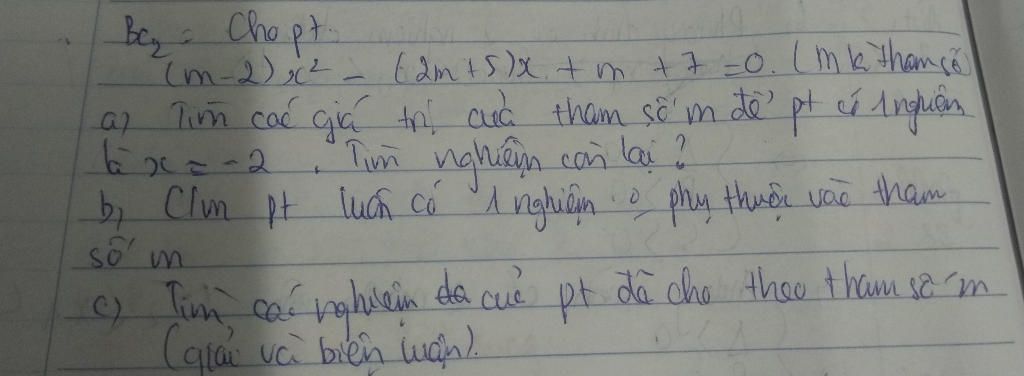 Bc₂ = Cho pt.
(m-2)x² - (2m+5)x + m + 7 = 0. (m là tham số)
a) Tìm các giá trị của tham số m để pt có 1 nghiệm
là x = -2. Tìm nghiệm còn lại?
b) C/m pt luôn có 1 nghiệm o phụ thuộc vào tham
số m
c) Tìm các nghiệm của pt đã cho theo tham số m
(giải và biện luận).